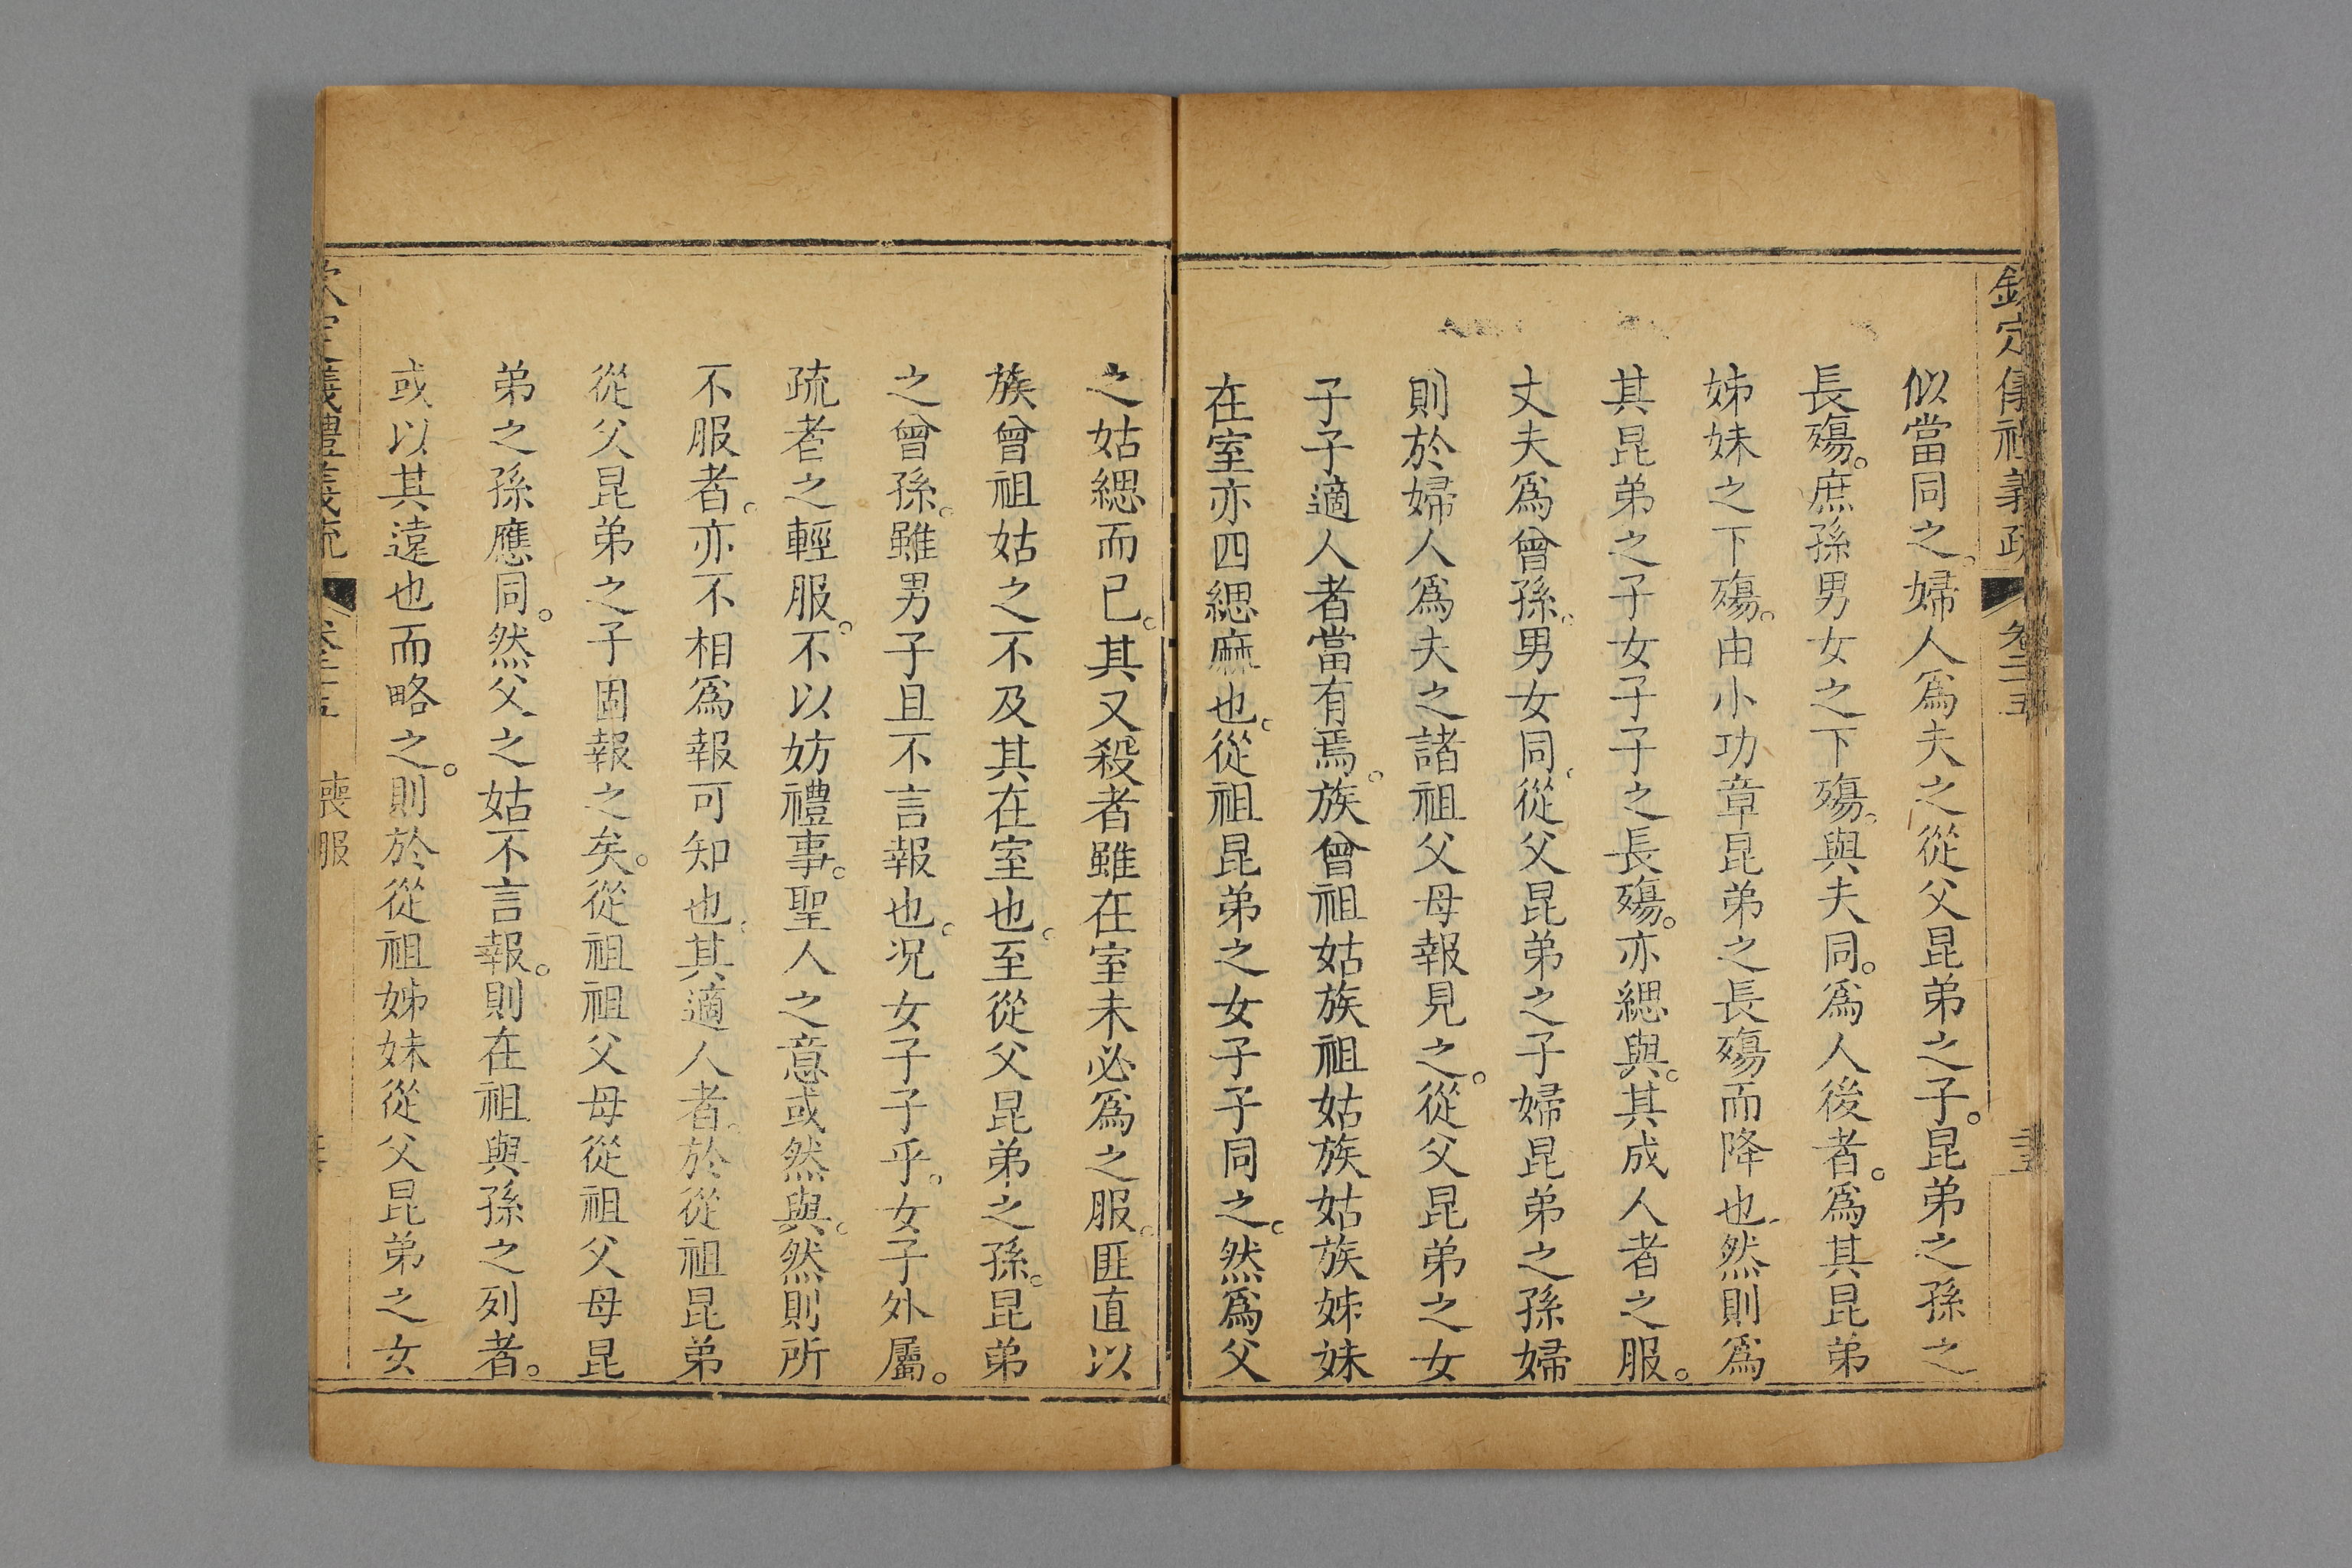 欽定儀禮義疏 卷二十五
似當同之。婦人爲夫之從父昆弟之子。昆弟之孫之
長殤。庶孫男女之下殤。與夫同。爲人後者。爲其昆弟
姊妹之下殤。由小功章昆弟之長殤而降也。然則爲
其昆弟之子女子子之長殤。亦緦與。其成人者之服。
丈夫爲曾孫。男女同。從父昆弟之子婦昆弟之孫婦
則於婦人爲夫之諸祖父母報見之。從父昆弟之女
子子適人者當有焉。族曾祖姑族祖姑族姑族姊妹
在室亦四緦麻也。從祖昆弟之女子子同之。然爲父
之姑緦而已。其又殺者雖在室未必爲之服。匪直以
族曾祖姑之不及其在室也。至從父昆弟之孫。昆弟
之曾孫。雖男子且不言報也。况女子子乎。女子外屬。
疏者之輕服。不以妨禮事。聖人之意或然與。然則所
不服者。亦不相爲報可知也。其適人者。於從祖昆弟
從父昆弟之子固報之矣。從祖祖父母從祖父母昆
弟之孫應同。然父之姑不言報。則在祖與孫之列者。
或以其遠也而略之。則於從祖姊妹從父昆弟之女
欽定儀禮義疏 卷二十五 喪服